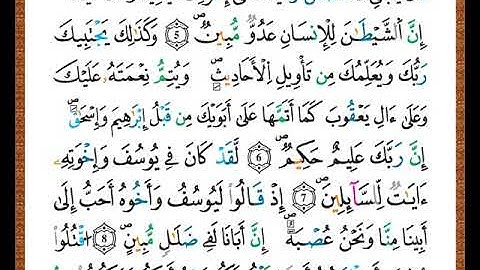 إِنَّ ٱلشَّيْطَـٰنَ لِلْإِنسَـٰنِ عَدُوٌّ مُّبِينٌ ٥ وَكَذَٰلِكَ يَجْتَبِيكَ
رَبُّكَ وَيُعَلِّمُكَ مِن تَأْوِيلِ ٱلْأَحَادِيثِ وَيُتِمُّ نِعْمَتَهُۥ عَلَيْكَ
وَعَلَىٰٓ ءَالِ يَعْقُوبَ كَمَآ أَتَمَّهَا عَلَىٰٓ أَبَوَيْكَ مِن قَبْلُ إِبْرَٰهِيمَ وَإِسْحَـٰقَ
إِنَّ رَبَّكَ عَلِيمٌ حَكِيمٌ ٦ لَّقَدْ كَانَ فِى يُوسُفَ وَإِخْوَتِهِۦٓ
ءَايَـٰتٌ لِّلسَّآئِلِينَ ٧ إِذْ قَالُوا۟ لَيُوسُفُ وَأَخُوهُ أَحَبُّ إِلَىٰٓ
أَبِينَا مِنَّا وَنَحْنُ عُصْبَةٌ إِنَّ أَبَانَا لَفِى ضَلَـٰلٍ مُّبِينٍ ٨ ٱقْتُلُوا۟